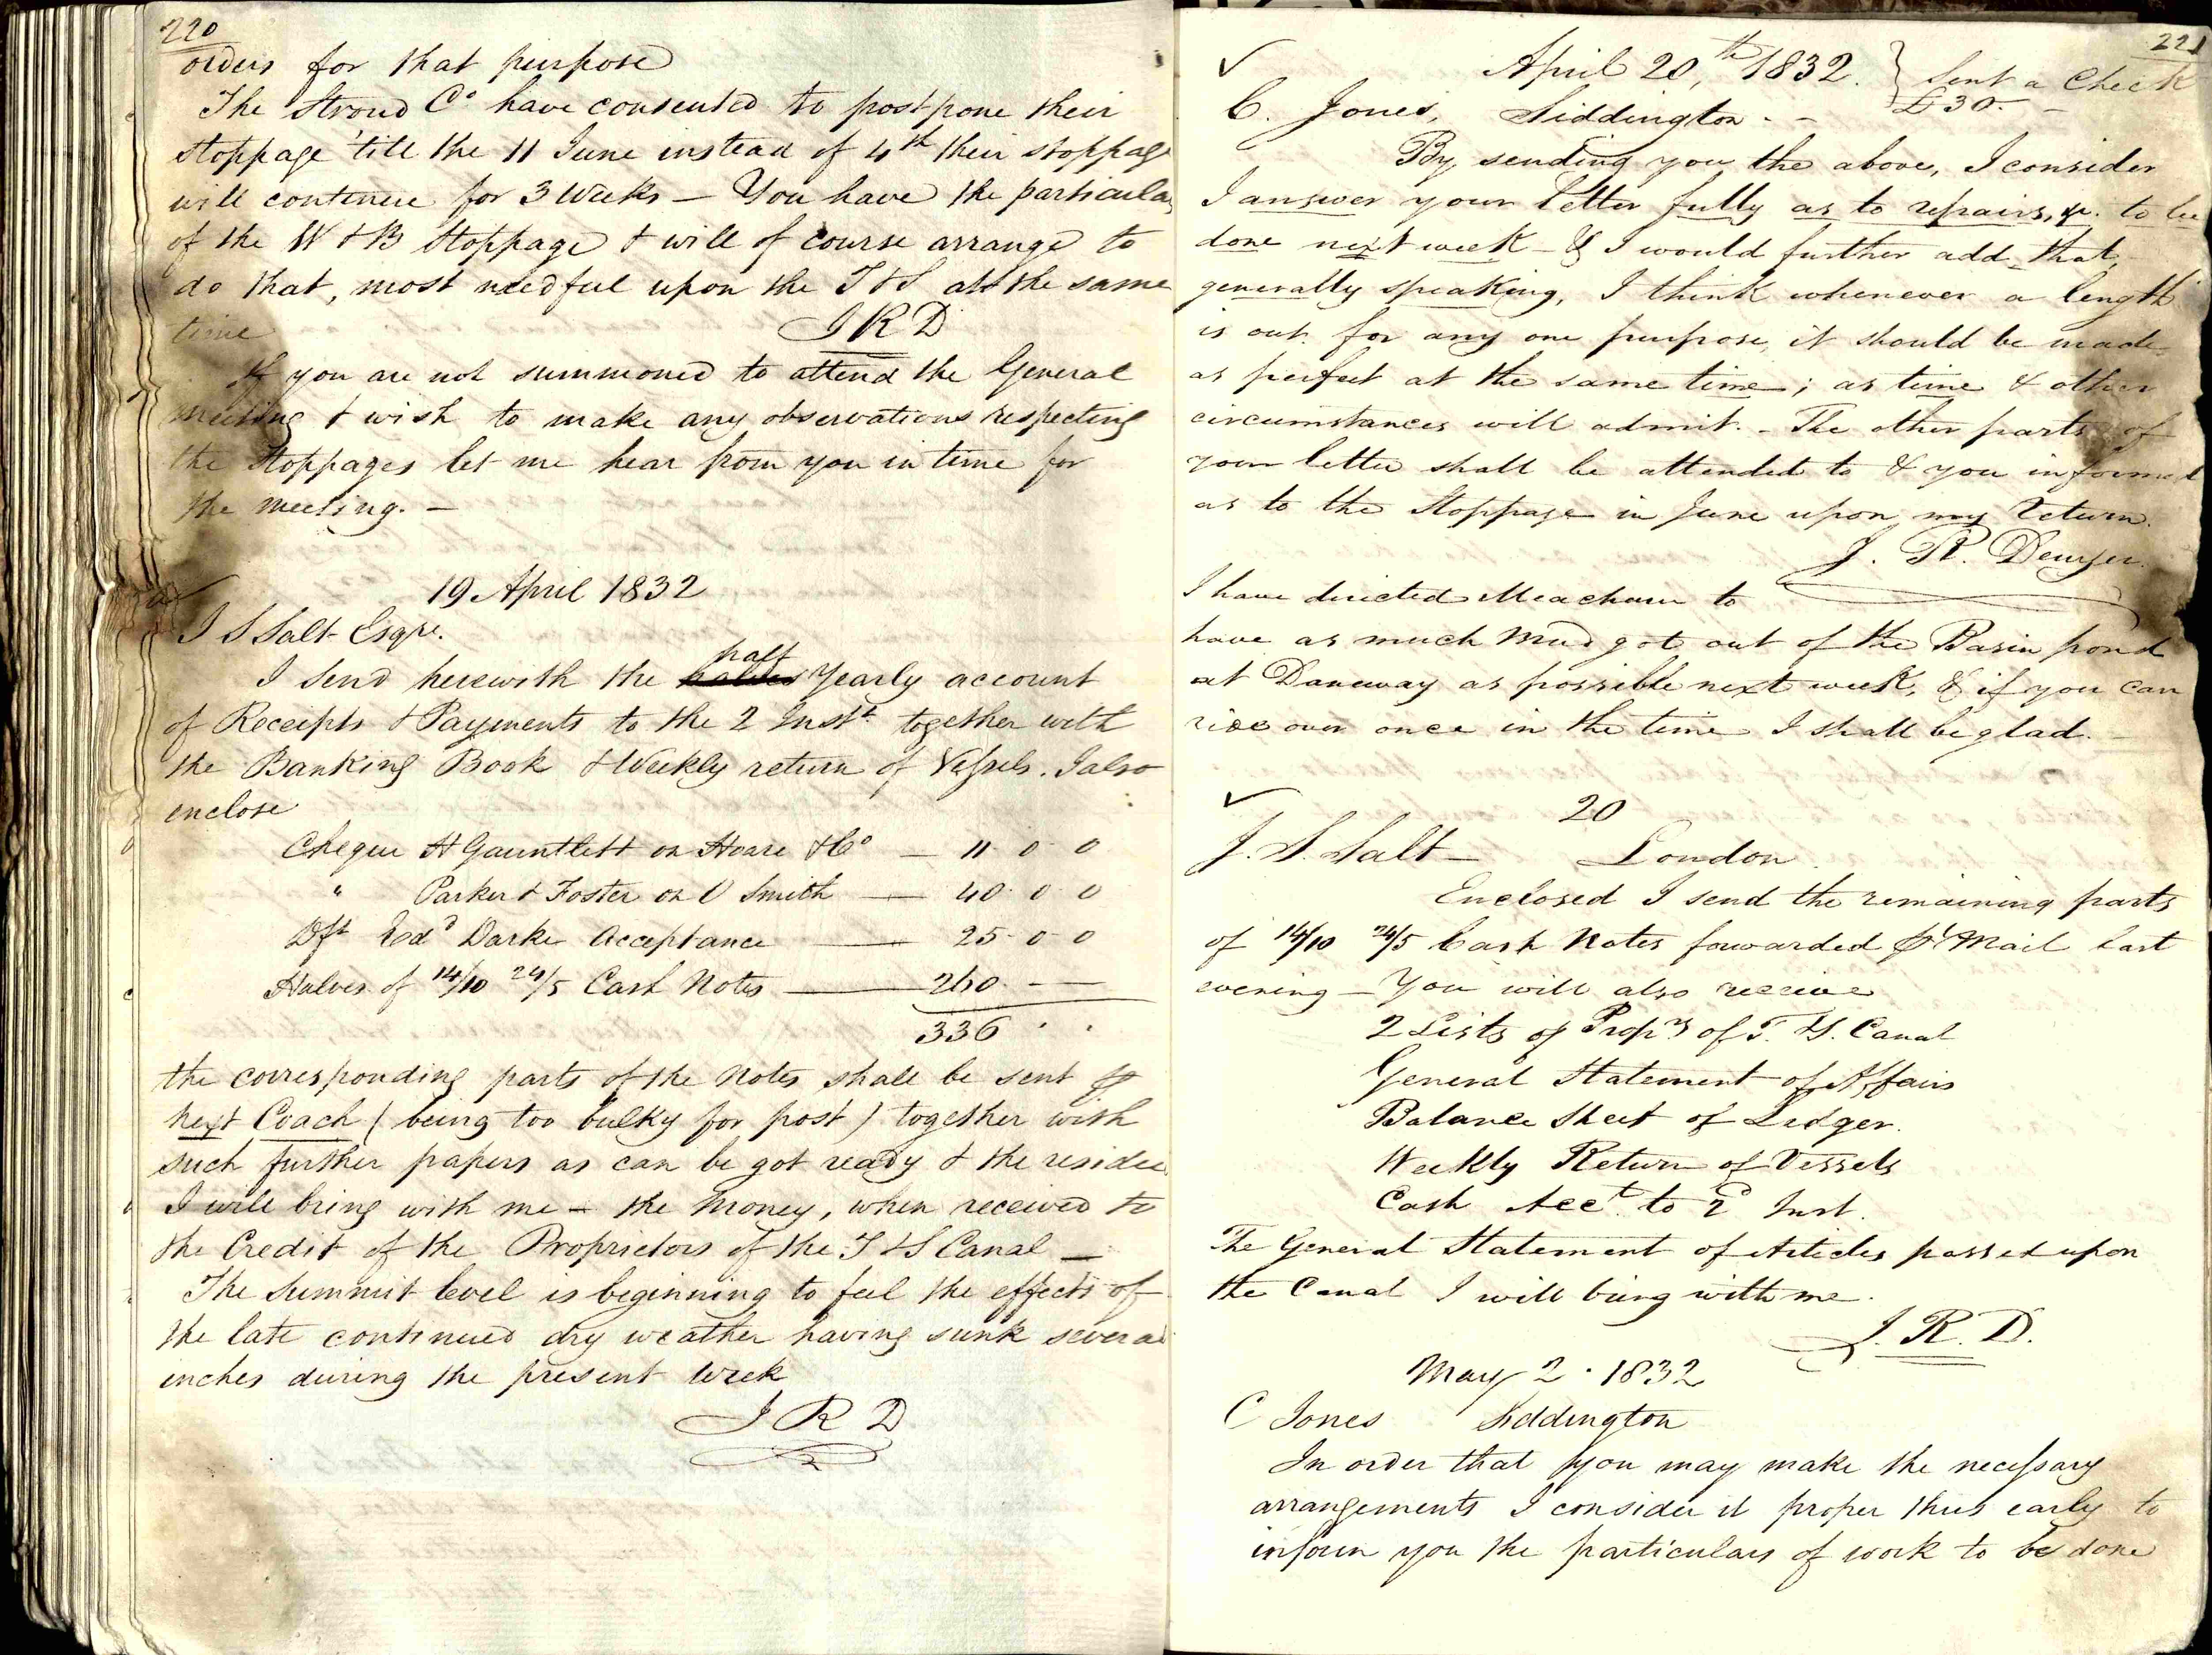 220
orders for that purpose
The Stroud Co. have consented to postpone their
stoppage 'till the 11 June instead of 4th their stoppage
will continue for 3 Weeks — You have the particulars
of the W & B Stoppage & will of course arrange to
do that, most needful upon the T & S at the same
time J R D
If you are not summoned to attend the General
meeting & wish to make any observations respecting
the Stoppages let me hear from you in time for
the meeting. —
19 April 1832
J S Salt Esqre.
half
I send herewith the halves Yearly account
of Receipts & Payments to the 2 Inst. together with
the Banking Book & Weekly return of Vessels. I also
enclose
Cheque H Gauntlett on Hoare & Co — 11 0 0
" Parker & Foster on O Smith — 40 0 0
Dft Edd Darke Acceptance — 25 0 0
Halves of 14/10 24/5 Cash Notes — 260 — —
336 . .
the corresponding parts of the Notes shall be sent p
next Coach (being too bulky for post) together with
such further papers as can be got ready & the residue
I will bring with me — the Money, when received to
the Credit of the Proprietors of the T & S Canal —
The Summit level is beginning to feel the effects of
the late continued dry weather having sunk several
inches during the present week
J R D
221
April 20,th 1832. } Sent a Check
C. Jones, Siddington - - £30. -
By sending you the above, I consider
I answer your letter fully as to repairs, &c. to be
done next week - & I would further add that,
generally speaking, I think whenever a length
is out for any one purpose, it should be made
as perfect at the same time; as time & other
circumstances will admit. - The other parts of
your letter shall be attended to & you informed
as to the Stoppage in June upon my return.
J. R. Denyer
I have directed Meacham to
have as much mud got out of the Basin pond
at Daneway as possible next week, & if you can
ride over once in the time I shall be glad. —
20
J. S. Salt — London
Enclosed I send the remaining parts
of 14/10 24/5 Cash Notes forwarded pr Mail last
evening — You will also receive
2 Lists of Proprs of T. & S. Canal
General Statement of Affairs
Balance Sheet of Ledger.
Weekly Return of Vessels
Cash Acct. to 2d Inst.
The General Statement of Articles passed upon
the Canal I will bring with me.
J. R. D.
May 2 . 1832
C Jones Siddington
In order that you may make the necessary
arrangements I consider it proper thus early to
inform you the particulars of work to be done